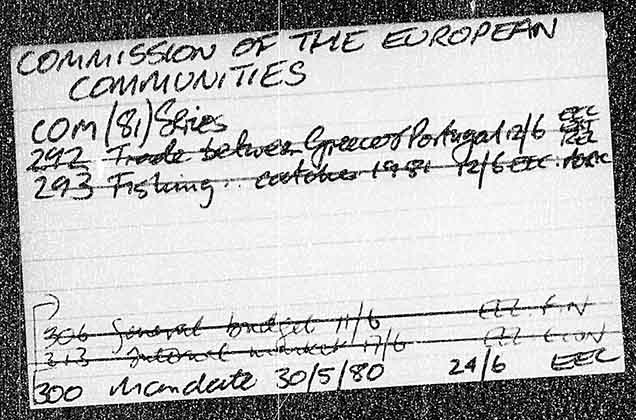 COMMISSION OF THE EUROPEAN
COMMUNITIES
COM (81) Series
292 Trade between Greece & Portugal 12/6 EEC EXT REL
293 Fishing.. catches 1981 12/6 EEC
306 General budget 11/6 EEC FIN
313 Internal market 17/6 EEC ECON
300 Mandate 30/5/80 24/6 EEC